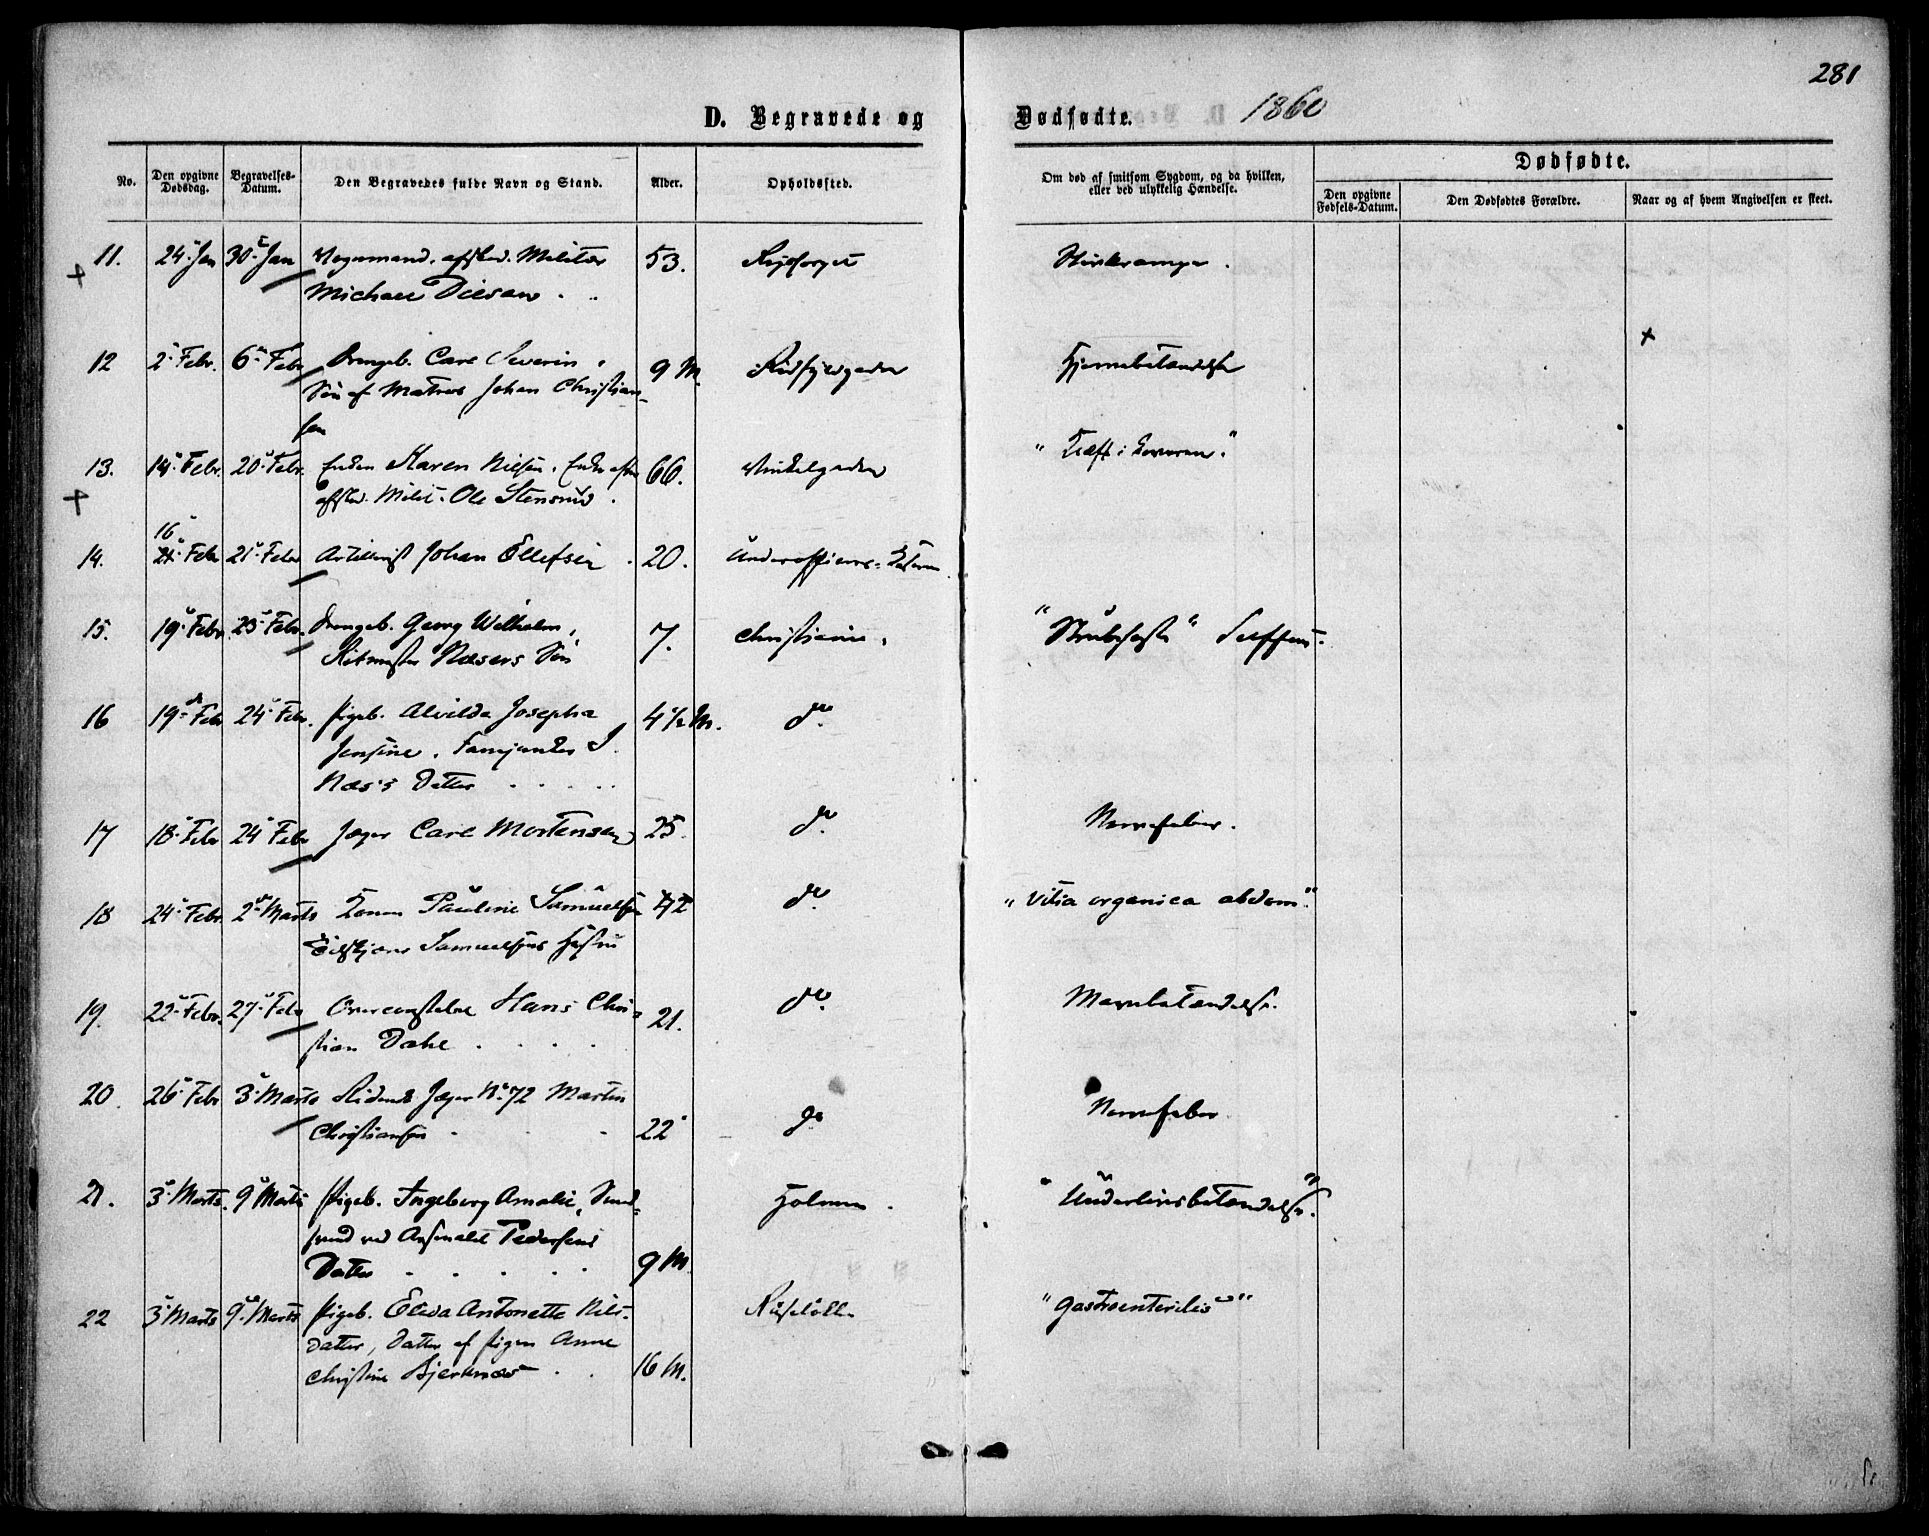 281
D. Begravede og Dødfødte. 1860
Dødfødte.
No. Den opgivne Dødsdag. Begravelses-Datum. Den Begravedes fulde Navn og Stand. Alder. Opholdssted. Om død af smitsom Sygdom, og da hvilken, eller ved ulykkelig Hændelse. Den opgivne Fødsels-Datum. Den Dødfødtes Forældre. Naar og af hvem Angivelsen er skeet.
11. 24. Jan 30. Jan Vognmand. afsked. Militær 53.
Michael
12 2. Febr. 6. Febr Drengeb. Carl Severin, 9 M. Hjernebetændelse
Søn af Matros Johan Christian-
sen
13. 14. Febr. 20. Febr. Enken Karen Nielsen. Enke efter 66. Vinkelgaden "Kræft i Leveren."
afsked. Milit. Ole Stensrud.
16
14. 21. Febr 21. Febr Artillerist Johan Ellefsen 20. Underofficers-
15. 19. Febr. 23. Febr. Drengeb. Georg Wilhelm, 7. Christiania. "Strubehoste"
Ritmester Næsers Søn
16 19. Febr 24. Febr. Pigeb. Alvilda Josepha 4 1/2 M. do.
Jensine. Fanejunker J.
Næs's Datter
17 18. Febr 24 Febr Jæger Carl Mortensen 25. do. Nervefeber.
18 24. Febr. 2. Marts Konen Pauline Samuelsen 42 do. "Vitia organica abdom."
Samuelsens Hustru
19. 22. Febr. 27. Febr Overconstabel Hans Chri- 21. do. Mavebetændelse.
stian Dahl
20. 26. Febr 3. Marts Ridende Jæger No. 72 Martin
Christiansen 22 do Nervefeber
21. 3. Marts. 9 Marts Pigeb. Ingeborg Amalie, Holmen. "Underlivsbetændelse."
svend ved Arsenalet Pedersens
Datter 9 M.
22 3 Marts 9. Marts Pigeb. Elida Antonette Nils- Ruseløkk "Gastroenteritis"
datter, Datter af Pigen Anne
Christine Bjerknæs 16 M.